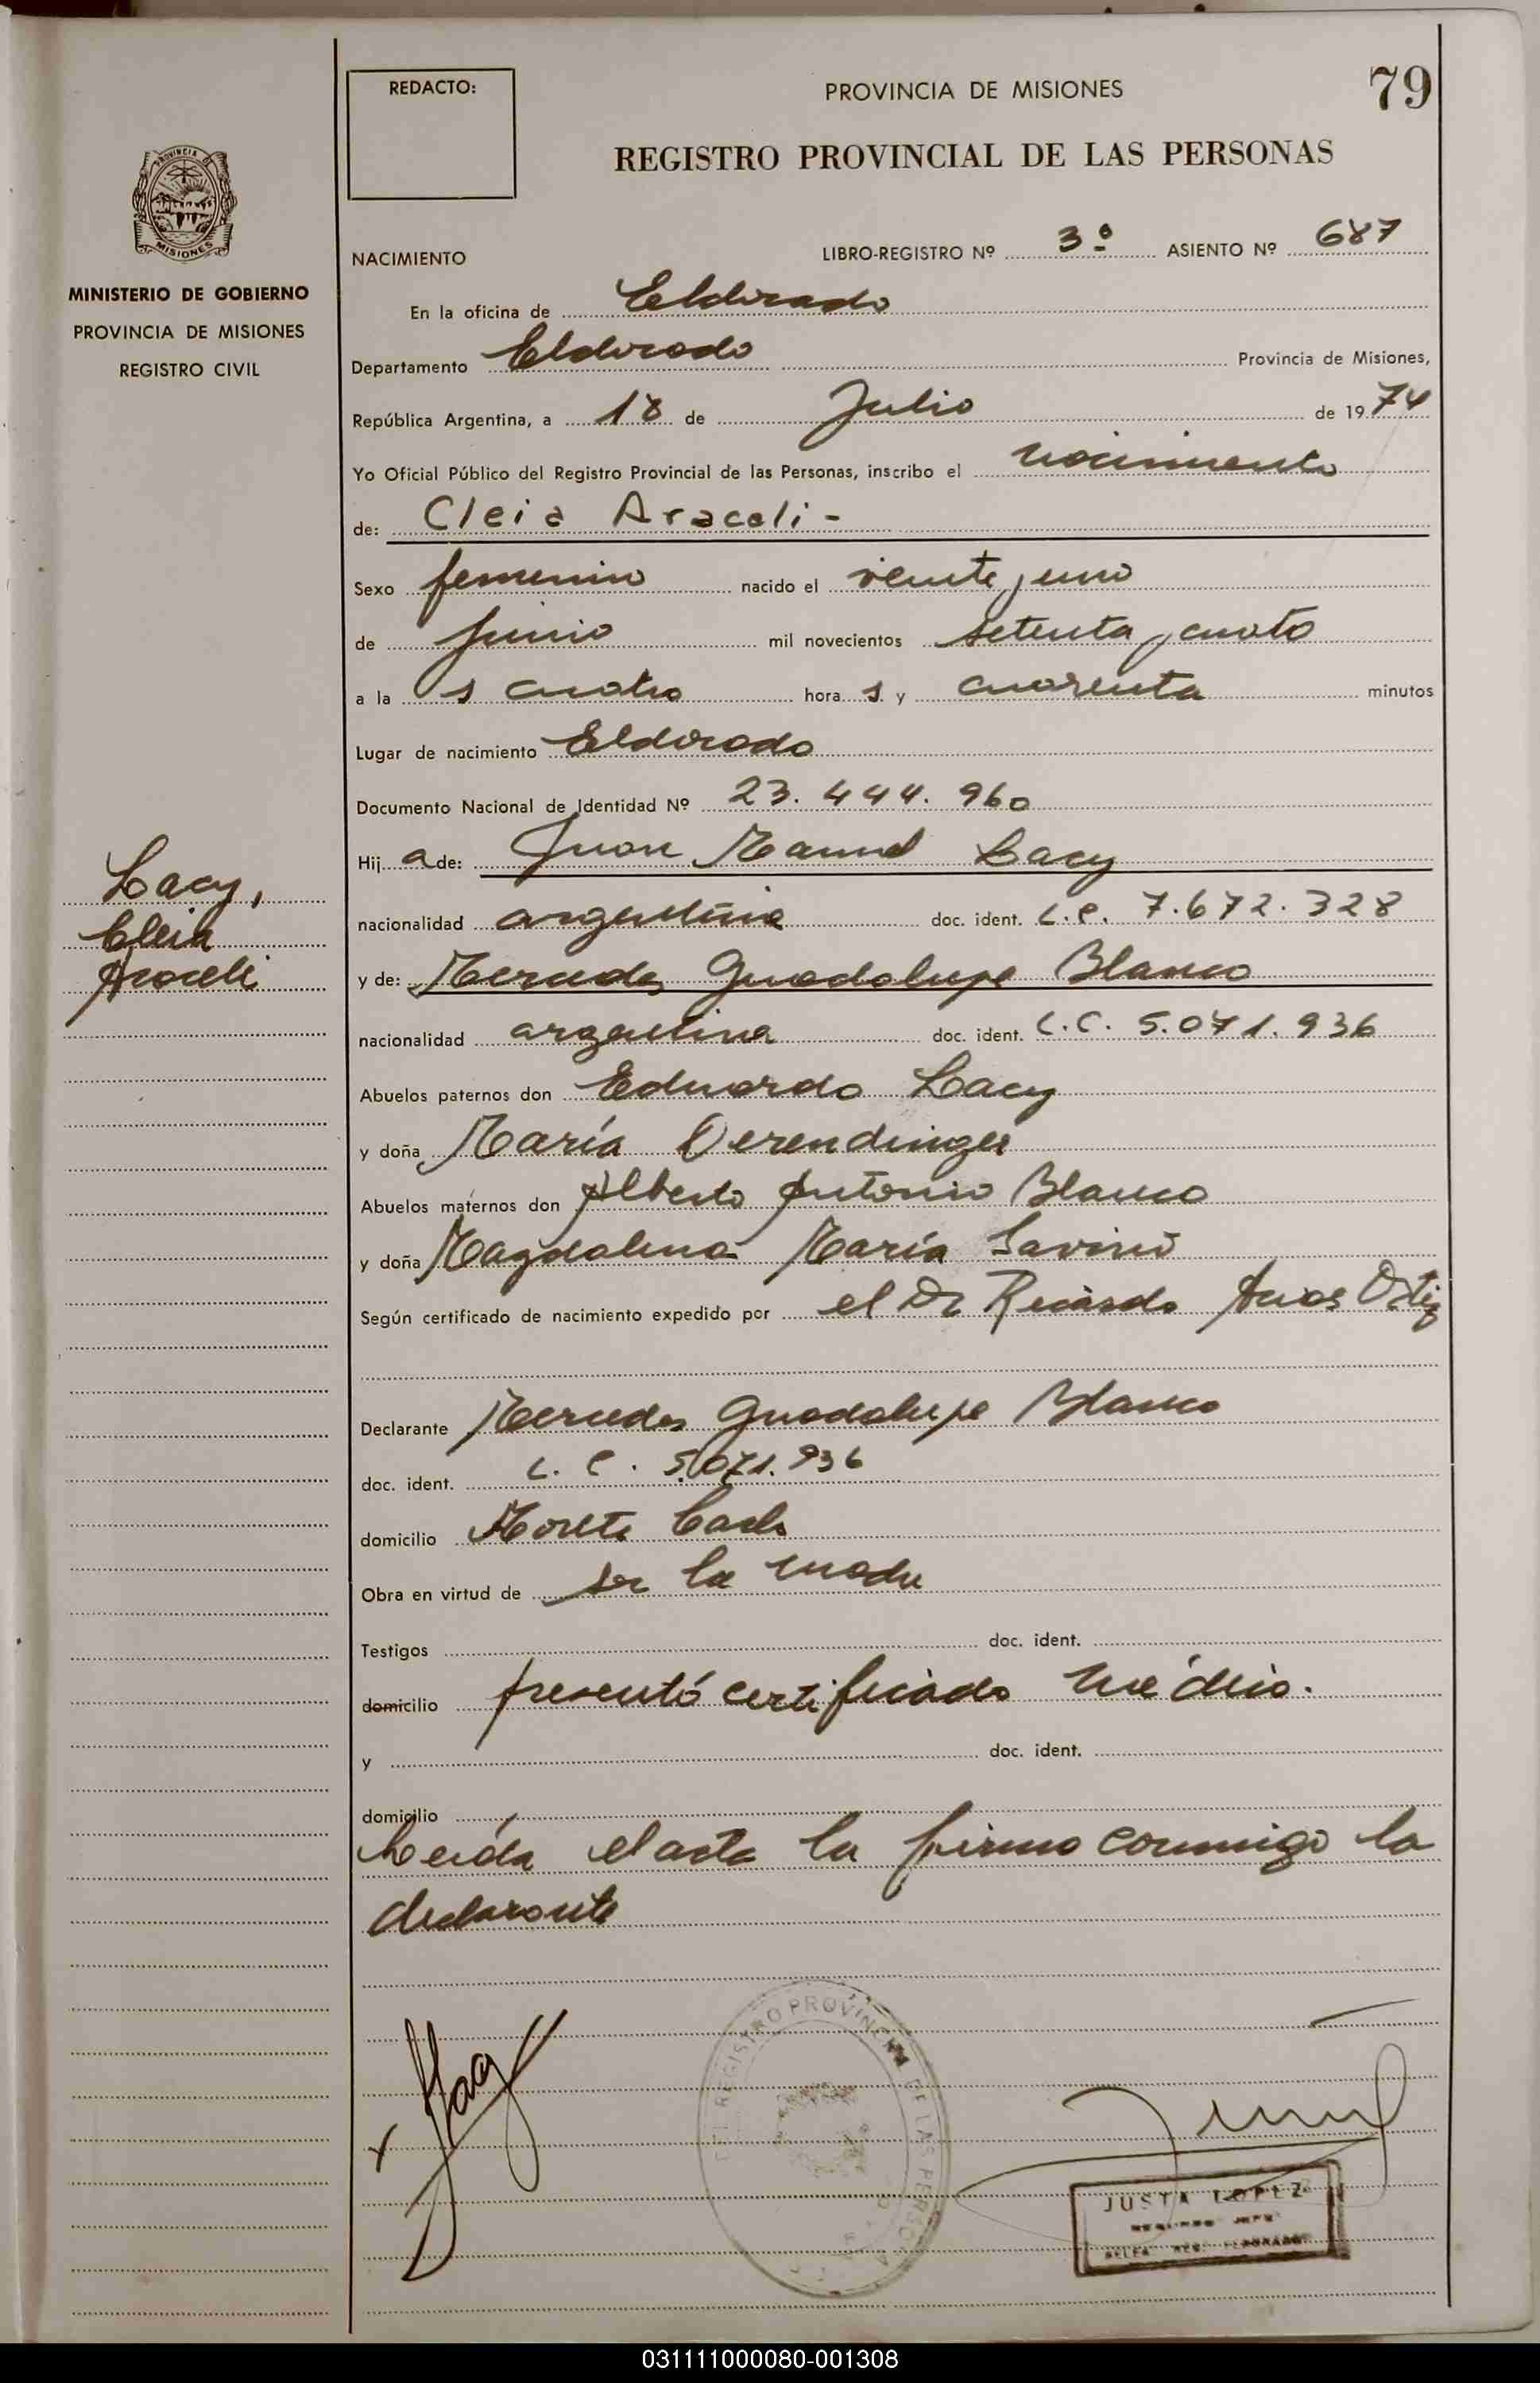 REDACTO:
PROVINCIA DE MISIONES
79
REGISTRO PROVINCIAL DE LAS PERSONAS
PROVINCIA
MISIONES
MINISTERIO DE GOBIERNO
PROVINCIA DE MISIONES
REGISTRO CIVIL
NACIMIENTO LIBRO-REGISTRO Nº 3º ASIENTO Nº 687
En la oficina de Eldorado
Departamento Eldorado Provincia de Misiones,
República Argentina, a 18 de Julio de 1974
Yo Oficial Público del Registro Provincial de las Personas, inscribo el nacimiento
de: Cleia Araceli -
Sexo femenino nacido el veinte y uno
de Junio mil novecientos setenta y cuatro
a la s cuatro hora s y cuarenta minutos
Lugar de nacimiento Eldorado
Documento Nacional de Identidad Nº 23.444.960
Hij a de: Juan Manuel Lacy
Lacy,
Cleia
Araceli
nacionalidad argentina doc. ident. L.E. 7.672.328
y de: Mercedes Guadalupe Blanco
nacionalidad argentina doc. ident. L.C. 5.071.936
Abuelos paternos don Eduardo Lacy
y doña María Derendinger
Abuelos maternos don Alberto Antonio Blanco
y doña Magdalena María Savini
Según certificado de nacimiento expedido por el Dr Ricardo Arios Ortiz
Declarante Mercedes Guadalupe Blanco
doc. ident. L.C. 5.071.936
domicilio Monte Carlo
Obra en virtud de ser la madre
Testigos doc. ident.
domicilio presentó certificado médico.
y doc. ident.
domicilio
Leída el acta la firma conmigo la
declarante
x Lacy
REGISTRO PROVINCIAL DE LAS PERSONAS
JUSTA LOPEZ
031111000080-001308